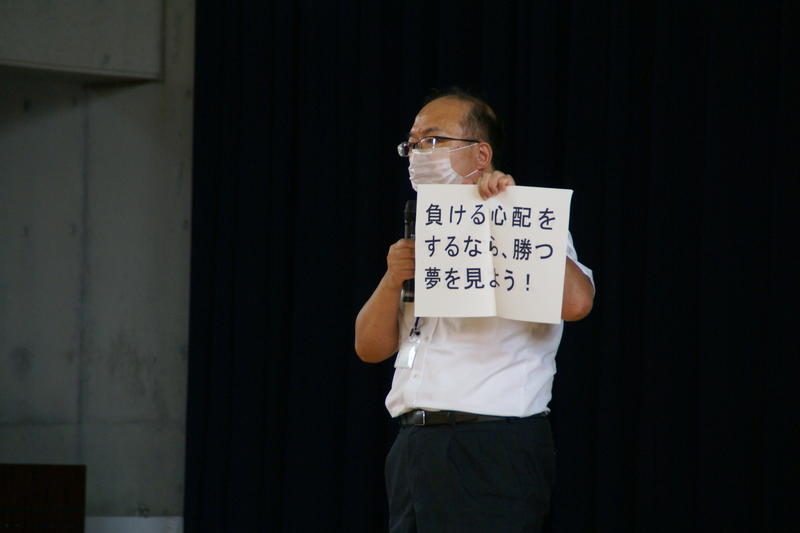 負ける心配を
するなら、勝つ
夢を見よう！